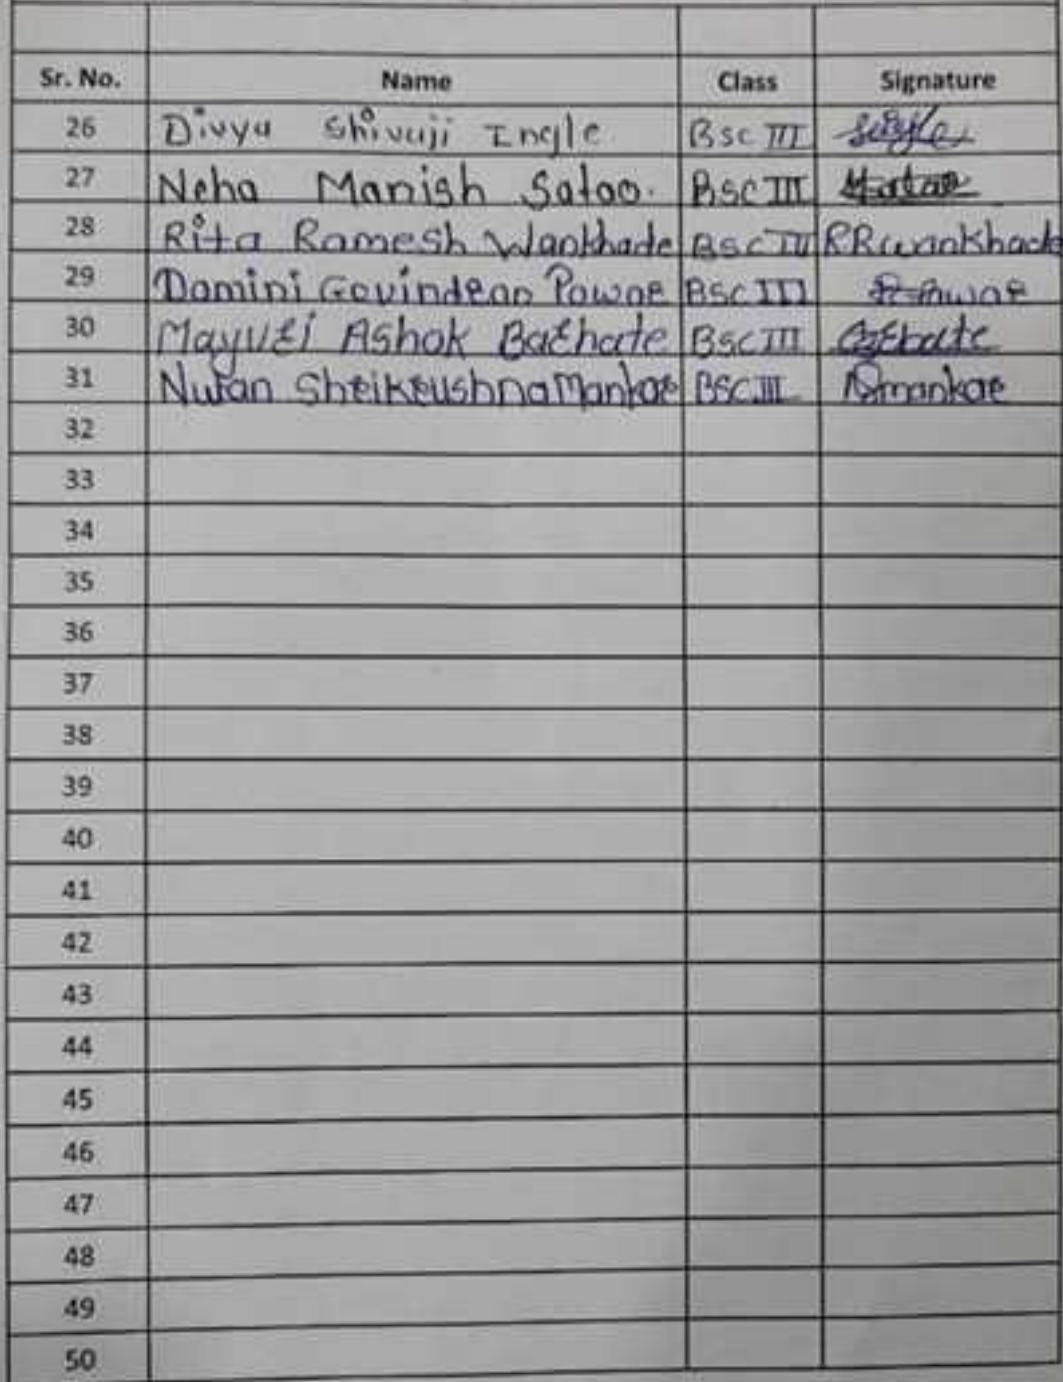 Sr. No. Name Class Signature
26 Divya Shivaji Ingle Bsc III
27 Neha Manish Satao. BSC III
28 Rita Ramesh Wankhade BSC III RRwankhade
29 Damini Govindrao Pawar BSC III
30 Mayuri Ashok Barhate BSC III
31 Nutan Shrikrushna Mankar BSC III Nmankar
32
33
34
35
36
37
38
39
40
41
42
43
44
45
46
47
48
49
50